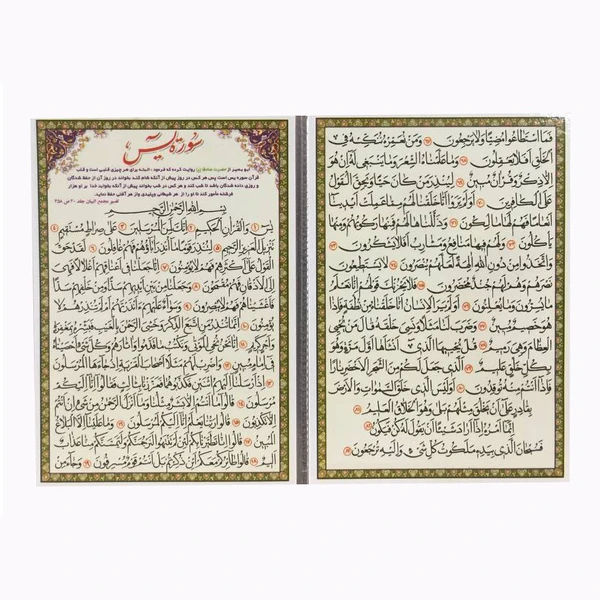 فَمَا اسْتَطَاعُوا مُضِيًّا وَلَا يَرْجِعُونَ ٦٧ وَمَنْ نُعَمِّرْهُ نُنَكِّسْهُ فِي
الْخَلْقِ أَفَلَا يَعْقِلُونَ ٦٨ وَمَا عَلَّمْنَاهُ الشِّعْرَ وَمَا يَنْبَغِي لَهُ إِنْ هُوَ
إِلَّا ذِكْرٌ وَقُرْآنٌ مُبِينٌ ٦٩ لِيُنْذِرَ مَنْ كَانَ حَيًّا وَيَحِقَّ الْقَوْلُ
عَلَى الْكَافِرِينَ ٧٠ أَوَلَمْ يَرَوْا أَنَّا خَلَقْنَا لَهُمْ مِمَّا عَمِلَتْ أَيْدِينَا
أَنْعَامًا فَهُمْ لَهَا مَالِكُونَ ٧١ وَذَلَّلْنَاهَا لَهُمْ فَمِنْهَا رَكُوبُهُمْ وَمِنْهَا
يَأْكُلُونَ ٧٢ وَلَهُمْ فِيهَا مَنَافِعُ وَمَشَارِبُ أَفَلَا يَشْكُرُونَ ٧٣
وَاتَّخَذُوا مِنْ دُونِ اللَّهِ آلِهَةً لَعَلَّهُمْ يُنْصَرُونَ ٧٤ لَا يَسْتَطِيعُونَ
نَصْرَهُمْ وَهُمْ لَهُمْ جُنْدٌ مُحْضَرُونَ ٧٥ فَلَا يَحْزُنْكَ قَوْلُهُمْ إِنَّا نَعْلَمُ
مَا يُسِرُّونَ وَمَا يُعْلِنُونَ ٧٦ أَوَلَمْ يَرَ الْإِنْسَانُ أَنَّا خَلَقْنَاهُ مِنْ نُطْفَةٍ فَإِذَا
هُوَ خَصِيمٌ مُبِينٌ ٧٧ وَضَرَبَ لَنَا مَثَلًا وَنَسِيَ خَلْقَهُ قَالَ مَنْ يُحْيِي
الْعِظَامَ وَهِيَ رَمِيمٌ ٧٨ قُلْ يُحْيِيهَا الَّذِي أَنْشَأَهَا أَوَّلَ مَرَّةٍ وَهُوَ
بِكُلِّ خَلْقٍ عَلِيمٌ ٧٩ الَّذِي جَعَلَ لَكُمْ مِنَ الشَّجَرِ الْأَخْضَرِ نَارًا
فَإِذَا أَنْتُمْ مِنْهُ تُوقِدُونَ ٨٠ أَوَلَيْسَ الَّذِي خَلَقَ السَّمَاوَاتِ وَالْأَرْضَ
بِقَادِرٍ عَلَى أَنْ يَخْلُقَ مِثْلَهُمْ بَلَى وَهُوَ الْخَلَّاقُ الْعَلِيمُ ٨١
إِنَّمَا أَمْرُهُ إِذَا أَرَادَ شَيْئًا أَنْ يَقُولَ لَهُ كُنْ فَيَكُونُ ٨٢
فَسُبْحَانَ الَّذِي بِيَدِهِ مَلَكُوتُ كُلِّ شَيْءٍ وَإِلَيْهِ تُرْجَعُونَ ٨٣
سوره یس
ابو بصیر از حضرت صادق (ع) روایت کرده که فرمود : البته برای هر چیزی قلبی است و قلب
قرآن سوره یس است پس هر کس در روز پیش از آنکه شام کند بخواند در روز آن از حفظ شدگان
و روزی داده شدگان باشد تا شب کند و هر کس در شب بخواند پیش از آنکه بخوابد خدا بر او هزار
فرشته مأمور کند تا او را از هر شیطان پلیدی واز هر آفتی حفظ نماید.
تفسیر مجمع البیان جلد ۲۰ ص ۳۵۸
بِسْمِ اللَّهِ الرَّحْمَنِ الرَّحِيمِ
يس ١ وَالْقُرْآنِ الْحَكِيمِ ٢ إِنَّكَ لَمِنَ الْمُرْسَلِينَ ٣ عَلَى صِرَاطٍ مُسْتَقِيمٍ ٤
تَنْزِيلَ الْعَزِيزِ الرَّحِيمِ ٥ لِتُنْذِرَ قَوْمًا مَا أُنْذِرَ آبَاؤُهُمْ فَهُمْ غَافِلُونَ ٦ لَقَدْ حَقَّ
الْقَوْلُ عَلَى أَكْثَرِهِمْ فَهُمْ لَا يُؤْمِنُونَ ٧ إِنَّا جَعَلْنَا فِي أَعْنَاقِهِمْ أَغْلَالًا فَهِيَ
إِلَى الْأَذْقَانِ فَهُمْ مُقْمَحُونَ ٨ وَجَعَلْنَا مِنْ بَيْنِ أَيْدِيهِمْ سَدًّا وَمِنْ خَلْفِهِمْ سَدًّا
فَأَغْشَيْنَاهُمْ فَهُمْ لَا يُبْصِرُونَ ٩ وَسَوَاءٌ عَلَيْهِمْ أَأَنْذَرْتَهُمْ أَمْ لَمْ تُنْذِرْهُمْ لَا
يُؤْمِنُونَ ١٠ إِنَّمَا تُنْذِرُ مَنِ اتَّبَعَ الذِّكْرَ وَخَشِيَ الرَّحْمَنَ بِالْغَيْبِ فَبَشِّرْهُ بِمَغْفِرَةٍ
وَأَجْرٍ كَرِيمٍ ١١ إِنَّا نَحْنُ نُحْيِي الْمَوْتَى وَنَكْتُبُ مَا قَدَّمُوا وَآثَارَهُمْ وَكُلَّ شَيْءٍ أَحْصَيْنَاهُ
فِي إِمَامٍ مُبِينٍ ١٢ وَاضْرِبْ لَهُمْ مَثَلًا أَصْحَابَ الْقَرْيَةِ إِذْ جَاءَهَا الْمُرْسَلُونَ
١٣ إِذْ أَرْسَلْنَا إِلَيْهِمُ اثْنَيْنِ فَكَذَّبُوهُمَا فَعَزَّزْنَا بِثَالِثٍ فَقَالُوا إِنَّا إِلَيْكُمْ
مُرْسَلُونَ ١٤ قَالُوا مَا أَنْتُمْ إِلَّا بَشَرٌ مِثْلُنَا وَمَا أَنْزَلَ الرَّحْمَنُ مِنْ شَيْءٍ إِنْ أَنْتُمْ
إِلَّا تَكْذِبُونَ ١٥ قَالُوا رَبُّنَا يَعْلَمُ إِنَّا إِلَيْكُمْ لَمُرْسَلُونَ ١٦ وَمَا عَلَيْنَا إِلَّا الْبَلَاغُ
الْمُبِينُ ١٧ قَالُوا إِنَّا تَطَيَّرْنَا بِكُمْ لَئِنْ لَمْ تَنْتَهُوا لَنَرْجُمَنَّكُمْ وَلَيَمَسَّنَّكُمْ مِنَّا عَذَابٌ
أَلِيمٌ ١٨ قَالُوا طَائِرُكُمْ مَعَكُمْ أَئِنْ ذُكِّرْتُمْ بَلْ أَنْتُمْ قَوْمٌ مُسْرِفُونَ ١٩ وَجَاءَ مِنْ